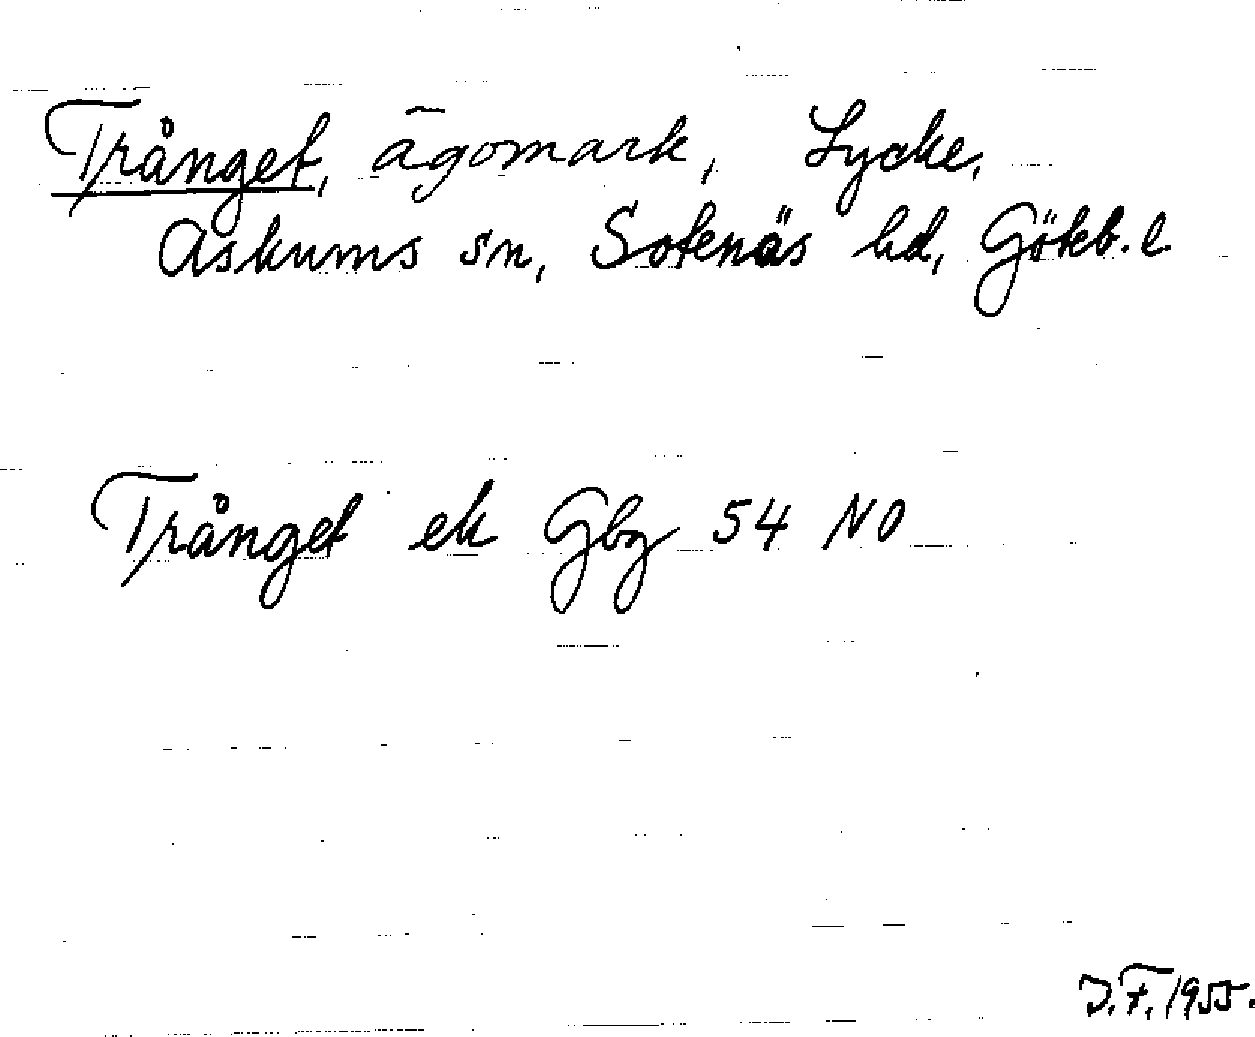 Trånget, ägomark, Lycke,
Askums sn, Sotenäs hd, Göteb. l
Trånget ek Gbg 54 NO
J.F. 1955.